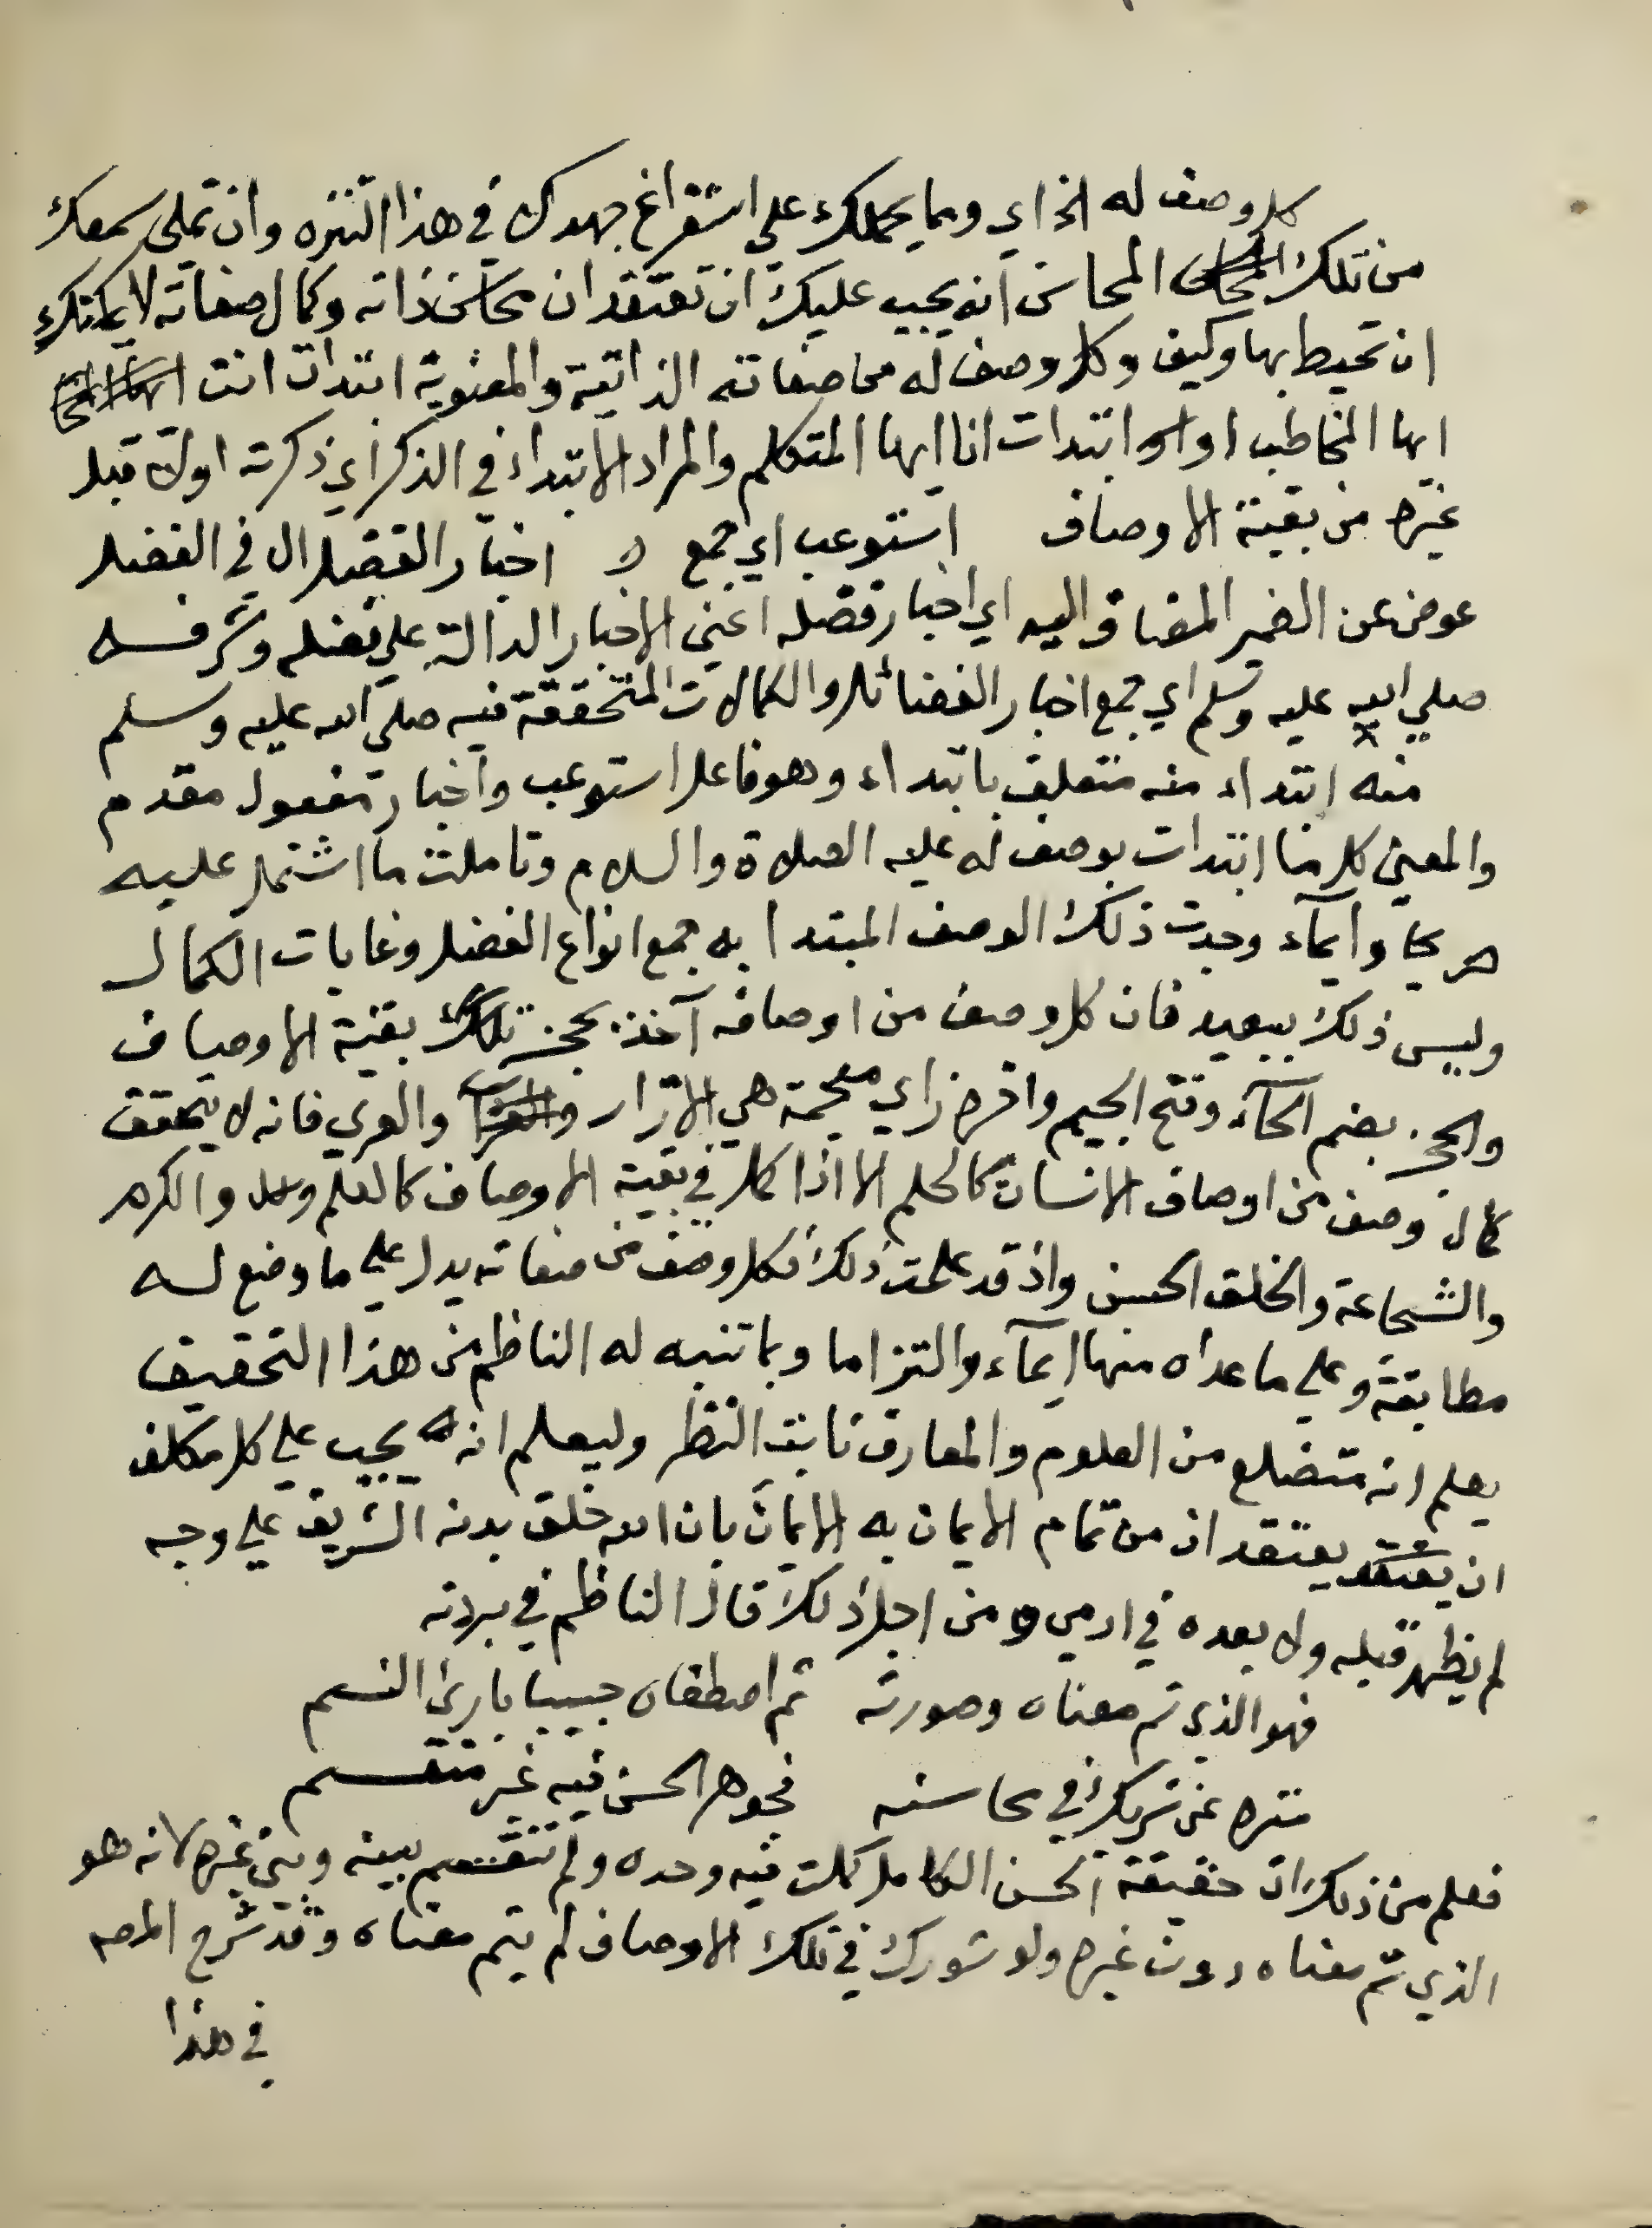 كل وصف له الخ اي ومما يحملك علي استفراغ جهدك في هذا التنزه وان تملي سمعك
من تلك المحاسن انه يجب عليك ان تعتقد ان محاسن ذاته وكمال صفاته لا يمكنك
ان تحيط بها وكيف وكل وصف له من صفاته الذاتية والمعنوية ابتدات انت
ايها المخاطب او ابتدات انا ايها المتكلم والمراد الابتداء في الذكر اي ذكرته اولا قبل
غيره من بقية الاوصاف استوعب اي جمع اخبار الفضل ال في الفضل
عوض عن الضمير المضاف اليه اي اخبار فضله اعني الاخبار الدالة علي فضله وشرفه
صلي الله عليه وسلم اي جمع اخبار الفضائل والكمالات المتحققة فيه صلي الله عليه وسلم
منه ابتداء منه متعلق بابتداء وهو فاعل استوعب واخبار مفعول مقدم
والمعني كل ما ابتدات بوصف له عليه الصلاة والسلام وتاملت ما اشتمل عليه
صريحا وايمآء وجدت ذلك الوصف المبتدا به جمع انواع الفضل وغايات الكمال
وليس ذلك ببعيد فان كل وصف من اوصافه آخذ بحجز تلك بقية الاوصاف
والحجز بضم الحآء وفتح الجيم واخره زاي معجمة هي الازرار والعري فانه لا يتحقق
كمال وصف من اوصاف الانسان كالحلم الا اذا كمل في بقية الاوصاف كالعلم والكرم
والشجاعة والخلق الحسن واذ قد علمت ذلك فكل وصف من صفاته يدل علي ما وضع له
مطابقة وعلي ما عداه منها ايمآء والتزاما وبما تنبه له الناظم من هذا التحقيق
يعلم انه متضلع من العلوم والمعارف ثابت النظر وليعلم انه يجب علي كل مكلف
ان يعتقد ان من تمام الايمان به الايمان بان الله خلق بدنه الشريف علي وجه
لم يظهر قبله ولا بعده في ادمي ومن اجل ذلك قال الناظم في بردته
فهو الذي تم معناه وصورته ثم اصطفاه حبيبا بارئ النسم
منزه عن شريك في محاسنه فجوهر الحسن فيه غير منقسم
فعلم من ذلك ان حقيقة الحسن الكامل كملت فيه وحده ولم تنقسم بينه وبين غيره لانه هو
الذي تم معناه دون غيره ولو شورك في تلك الاوصاف لم يتم معناه وقد شرح المص
في هذا